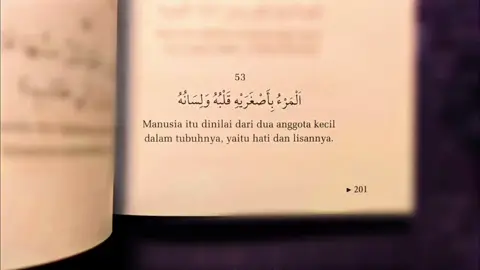 53
اَلْمَرْءُ بِأَصْغَرَيْهِ قَلْبُهُ وَلِسَانُهُ
Manusia itu dinilai dari dua anggota kecil
dalam tubuhnya, yaitu hati dan lisannya.
▸ 201